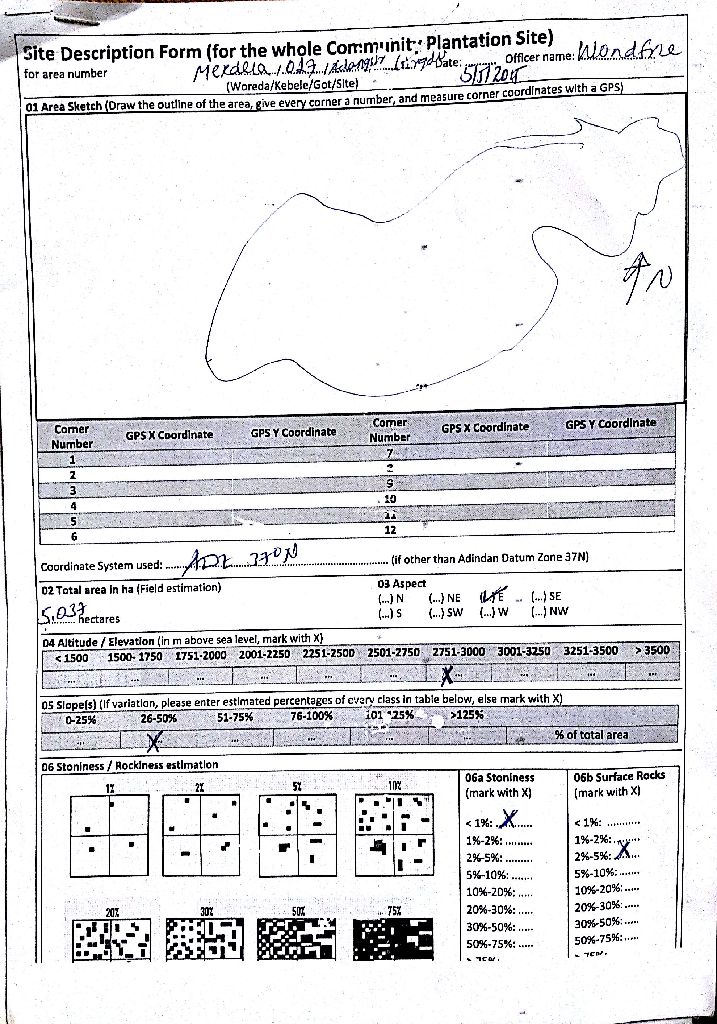 Site Description Form (for the whole Community Plantation Site)
for area number Merdera / 017 / Date: 5/5/2015 Officer name: Wondfre
(Woreda/Kebele/Got/Site)
01 Area Sketch (Draw the outline of the area, give every corner a number, and measure corner coordinates with a GPS)
N
Corner Number GPS X Coordinate GPS Y Coordinate Corner Number GPS X Coordinate GPS Y Coordinate
1 7
2
3 9
4 10
5 11
6 12
Coordinate System used: 37°N (if other than Adindan Datum Zone 37N)
02 Total area in ha (Field estimation) 03 Aspect
(...) N (...) NE E (...) SE
5.037 hectares (...) S (...) SW (...) W (...) NW
04 Altitude / Elevation (in m above sea level, mark with X)
< 1500 1500- 1750 1751-2000 2001-2250 2251-2500 2501-2750 2751-3000 3001-3250 3251-3500 > 3500
... ... ... ... ... ... X ... ... ...
05 Slope(s) (If variation, please enter estimated percentages of every class in table below, else mark with X)
0-25% 26-50% 51-75% 76-100% 101-125% >125%
... X ... ... ... ... % of total area
06 Stoniness / Rockiness estimation
1% 2% 5% 10%
20% 30% 50% 75%
06a Stoniness
(mark with X)
< 1%: X
1%-2%: .........
2%-5%: .........
5%-10%: .......
10%-20%: .....
20%-30%: .....
30%-50%: .....
50%-75%: .....
> 75%:
06b Surface Rocks
(mark with X)
< 1%: ...........
1%-2%: .........
2%-5%: X
5%-10%: .......
10%-20%: .....
20%-30%: .....
30%-50%: .....
50%-75%: .....
> 75%: